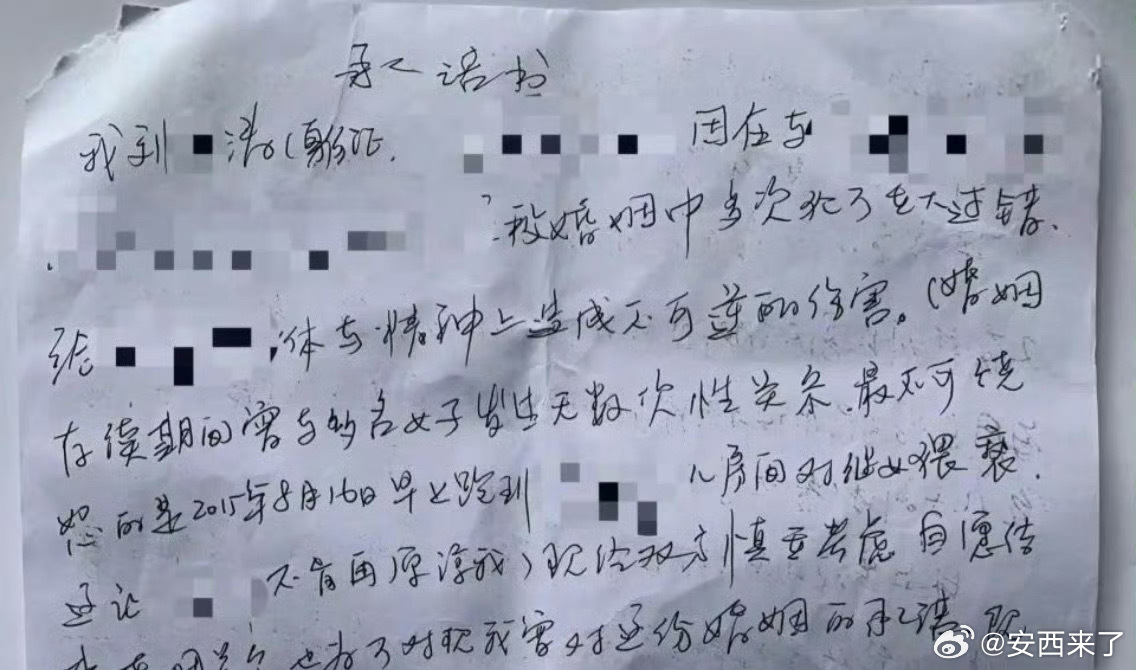 承诺书
我到 清 身份证. 因在与
, 段婚姻中多次犯了重大过错.
给 体与精神上造成不可逆的伤害。(婚姻
存续期间曾与多名女子发生无数次性关系.最不可饶
恕的是2015年8月16日早上跑到 儿房间对继女猥亵.
这让 不肯再原谅我)现经双方慎重考虑自愿结
对现我曾对这份婚姻的承诺
@安西来了